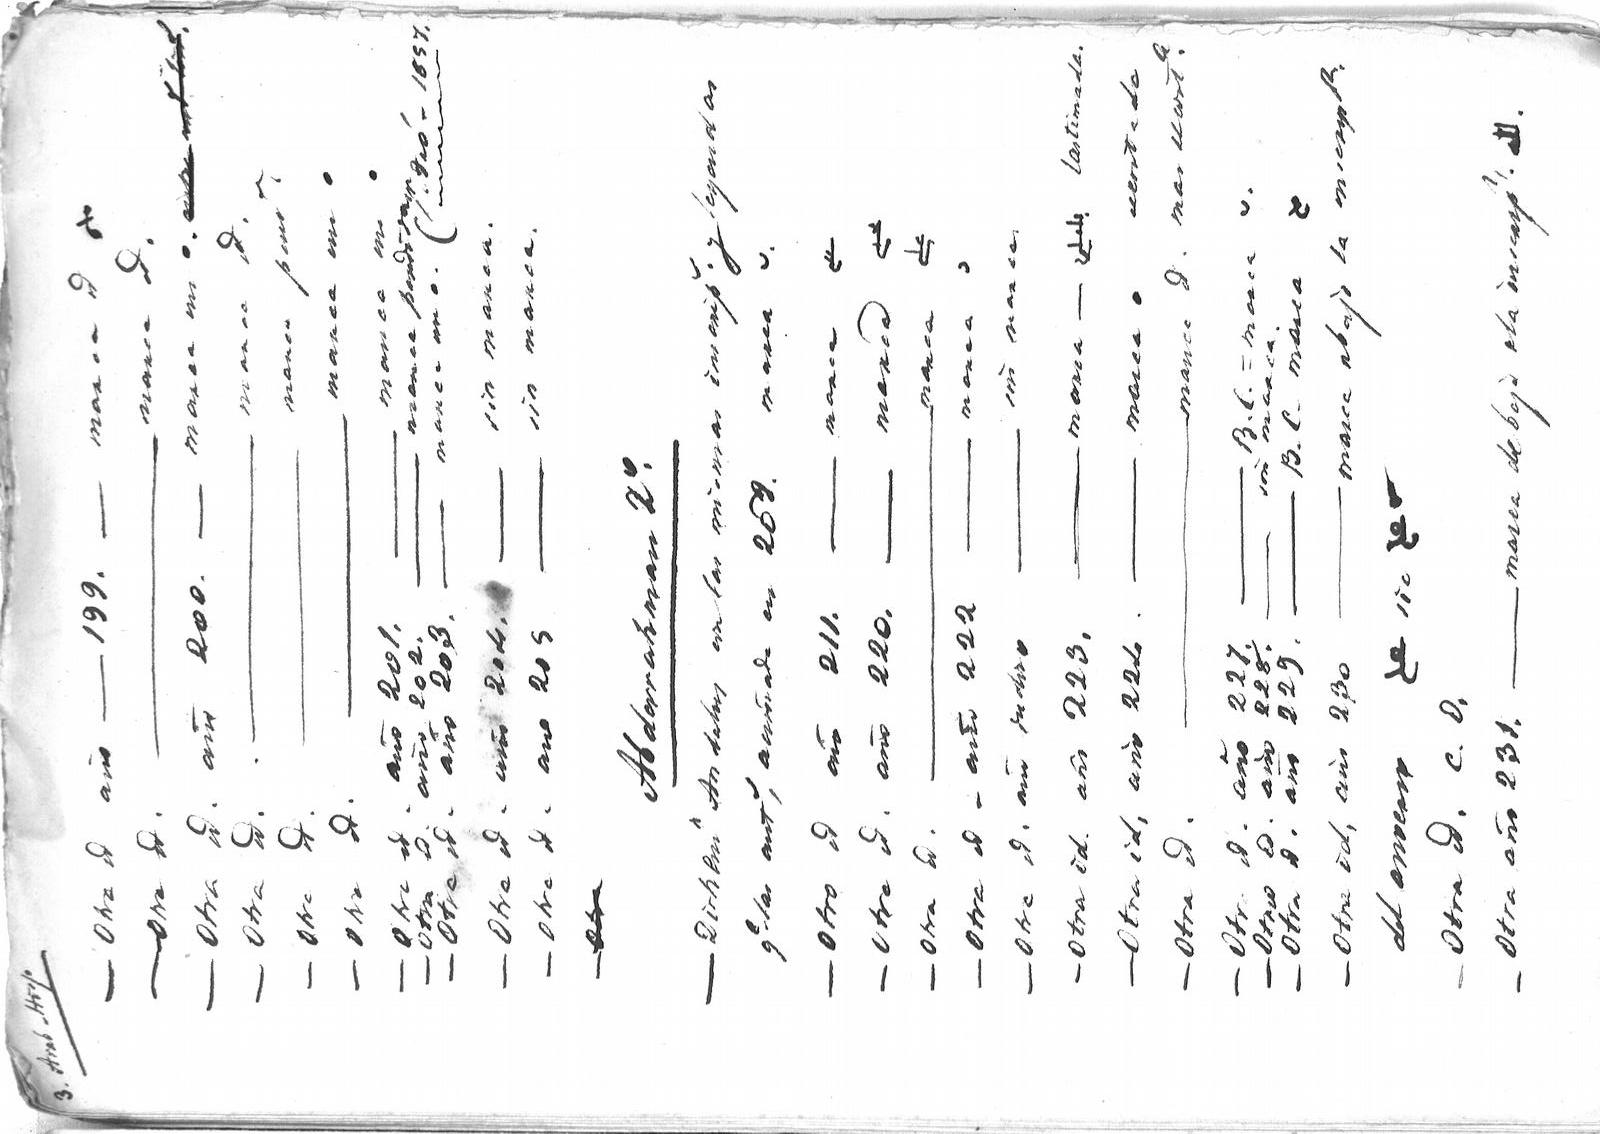 3. Arab
— Otra id año — 199. — marca id
— Otra id. — marca id.
— Otra id. año 200. — marca un o.
— Otra id. — marca id.
— Otra id. — marca
— Otra id. — marca un •
— Otra id. año 201. — marca un •
— Otra id. año 202. — marca
— Otra id. año 203. — marca un o. 1857.
— Otra id. año 204. — sin marca.
— Otra id. año 205 — sin marca.
— Otra
Abderrahman 2º.
— Dirhem Andalus con las mismas inscripˢ. y leyendas
qᵉ las antˢ, acuñada en 209. marca
— Otro id año 211. — marca
— Otra id. año 220. — marca
— Otra id. — marca
— Otra id — año 222 — marca
— Otra id. año — sin marca.
— Otra id. año 223. — marca — Lastimada.
— Otra id, año 224. — marca • recortada
— Otra id. — marca id. mas recortᵃ.
— Otra id. año 227. — B. C. = marca
— Otra id. año 228. — sin marca
— Otra id. año 229. — B. C. marca
— Otra id, año 230 — marca abajo la inscrip
del anverso sic
— Otra id. C. D.
— Otra año 231. — marca debajo de la inscripⁿ.